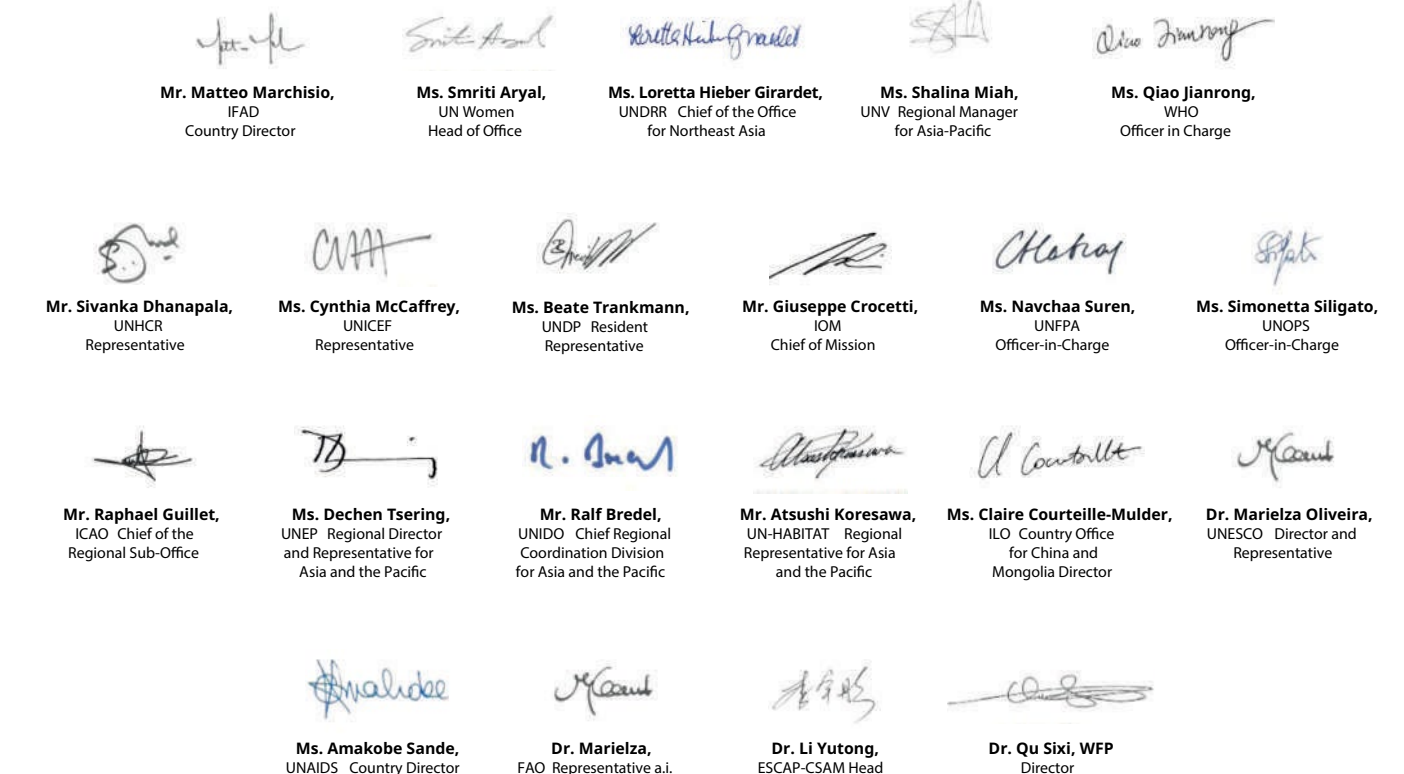 Mr. Matteo Marchisio,
IFAD
Country Director
Ms. Smriti Aryal,
UN Women
Head of Office
Loretta Hieber Girardet
Ms. Loretta Hieber Girardet,
UNDRR Chief of the Office
for Northeast Asia
Ms. Shalina Miah,
UNV Regional Manager
for Asia-Pacific
Qiao Jianrong
Ms. Qiao Jianrong,
WHO
Officer in Charge
Mr. Sivanka Dhanapala,
UNHCR
Representative
Ms. Cynthia McCaffrey,
UNICEF
Representative
Ms. Beate Trankmann,
UNDP Resident
Representative
Mr. Giuseppe Crocetti,
IOM
Chief of Mission
Ms. Navchaa Suren,
UNFPA
Officer-in-Charge
Ms. Simonetta Siligato,
UNOPS
Officer-in-Charge
Mr. Raphael Guillet,
ICAO Chief of the
Regional Sub-Office
Ms. Dechen Tsering,
UNEP Regional Director
and Representative for
Asia and the Pacific
Mr. Ralf Bredel,
UNIDO Chief Regional
Coordination Division
for Asia and the Pacific
Mr. Atsushi Koresawa,
UN-HABITAT Regional
Representative for Asia
and the Pacific
Ms. Claire Courteille-Mulder,
ILO Country Office
for China and
Mongolia Director
Dr. Marielza Oliveira,
UNESCO Director and
Representative
Ms. Amakobe Sande,
UNAIDS Country Director
Dr. Marielza,
FAO Representative a.i.
Dr. Li Yutong,
ESCAP-CSAM Head
Dr. Qu Sixi, WFP
Director